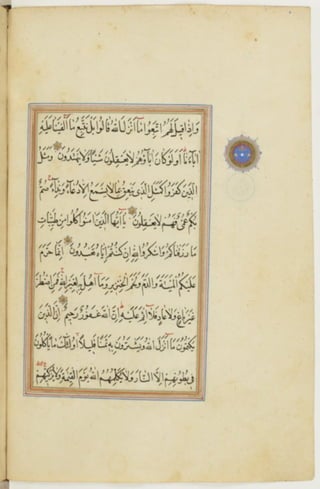 وَإِذَا قِيلَ لَهُمُ اتَّبِعُوا مَا أَنْزَلَ اللَّهُ قَالُوا بَلْ نَتَّبِعُ مَا أَلْفَيْنَا عَلَيْهِ
آبَاءَنَا أَوَلَوْ كَانَ آبَاؤُهُمْ لَا يَعْقِلُونَ شَيْئًا وَلَا يَهْتَدُونَ وَمَثَلُ
الَّذِينَ كَفَرُوا كَمَثَلِ الَّذِي يَنْعِقُ بِمَا لَا يَسْمَعُ إِلَّا دُعَاءً وَنِدَاءً صُمٌّ
بُكْمٌ عُمْيٌ فَهُمْ لَا يَعْقِلُونَ يَا أَيُّهَا الَّذِينَ آمَنُوا كُلُوا مِنْ طَيِّبَاتِ
مَا رَزَقْنَاكُمْ وَاشْكُرُوا لِلَّهِ إِنْ كُنْتُمْ إِيَّاهُ تَعْبُدُونَ إِنَّمَا حَرَّمَ
عَلَيْكُمُ الْمَيْتَةَ وَالدَّمَ وَلَحْمَ الْخِنْزِيرِ وَمَا أُهِلَّ بِهِ لِغَيْرِ اللَّهِ فَمَنِ اضْطُرَّ
غَيْرَ بَاغٍ وَلَا عَادٍ فَلَا إِثْمَ عَلَيْهِ إِنَّ اللَّهَ غَفُورٌ رَحِيمٌ إِنَّ الَّذِينَ
يَكْتُمُونَ مَا أَنْزَلَ اللَّهُ وَيَشْتَرُونَ بِهِ ثَمَنًا قَلِيلًا أُولَئِكَ مَا يَأْكُلُونَ
فِي بُطُونِهِمْ إِلَّا النَّارَ وَلَا يُكَلِّمُهُمُ اللَّهُ يَوْمَ الْقِيَامَةِ وَلَا يُزَكِّيهِمْ